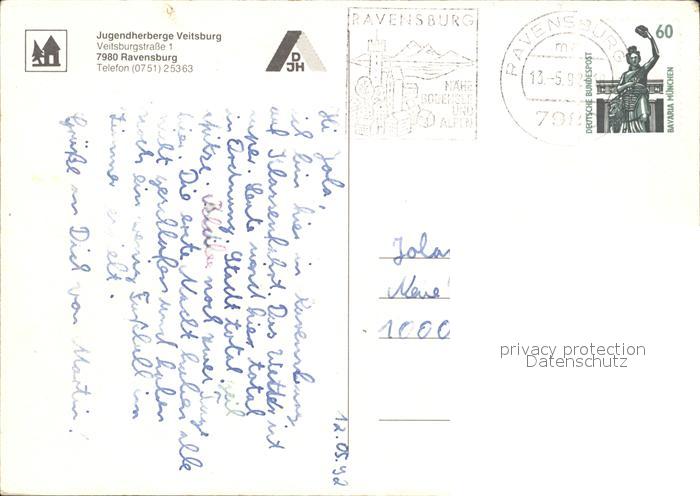 Jugendherberge Veitsburg
Veitsburgstraße 1
7980 Ravensburg
Telefon (0751) 25363
DJH
RAVENSBURG
NÄHE
BODENSEE
UND
ALPEN
RAVENSBURG
13.-5.9
798
DEUTSCHE BUNDESPOST
60
BAVARIA MÜNCHEN
Hi Jola,
ich bin hier in Ravensburg
auf Klassenfahrt. Das Wetter ist
super. Leute sind hier total
in Ordnung, Stadt total geil
spitze. Bleibe noch zwei Tage
hier. Die erste Nacht haben alle
nicht geschlafen und haben
noch ein wenig Fußball im
Zimmer gespielt.
Grüße an Dich von Martin!
12.05.92
Jola
Neue
1000
privacy protection
Datenschutz